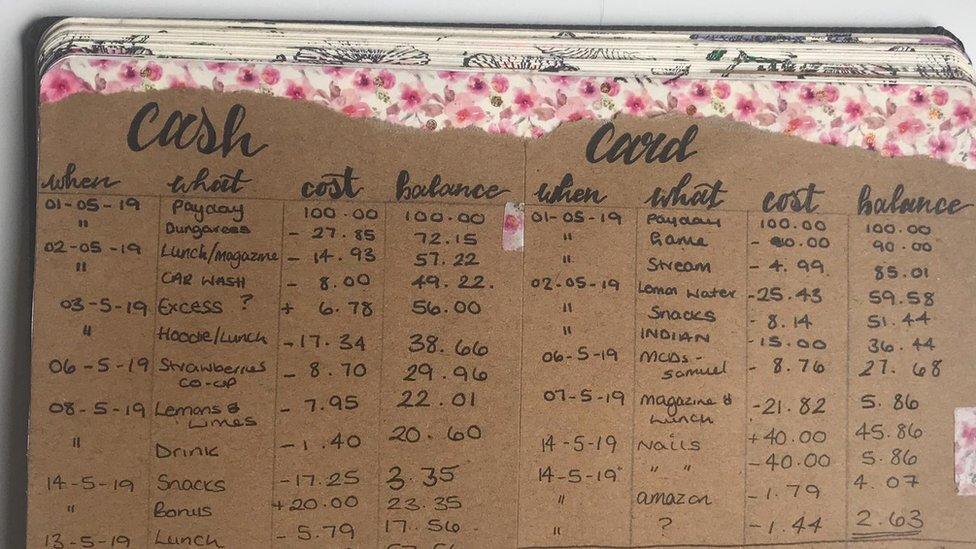 Cash
when what cost balance
01-05-19 Payday 100.00 100.00
" Dungarees - 27.85 72.15
02-05-19 Lunch/magazine - 14.93 57.22
" CAR WASH - 8.00 49.22.
03-5-19 Excess ? + 6.78 56.00
" Hoodie/Lunch -17.34 38.66
06-5-19 Strawberries - 8.70 29.96
CO-OP
08-5-19 Lemons & - 7.95 22.01
Limes
" Drink -1.40 20.60
14-5-19 Snacks -17.25 3.35
" Bonus +20.00 23.35
13-5-19 Lunch - 5.79 17.56
Card
when what cost balance
01-05-19 Payday 100.00 100.00
" Game 90.00
" Stream - 4.99. 85.01
02-05-19 Lemon Water -25.43 59.58
" Snacks - 8.14 51.44
" INDIAN -15.00 36.44
06-5-19 McDs - - 8.76 27.68
Samuel
07-5-19 magazine & -21.82 5.86
Lunch
14-5-19 Nails +40.00 45.86
14-5-19 " " -40.00 5.86
" amazon -1.79 4.07
" ? -1.44 2.63